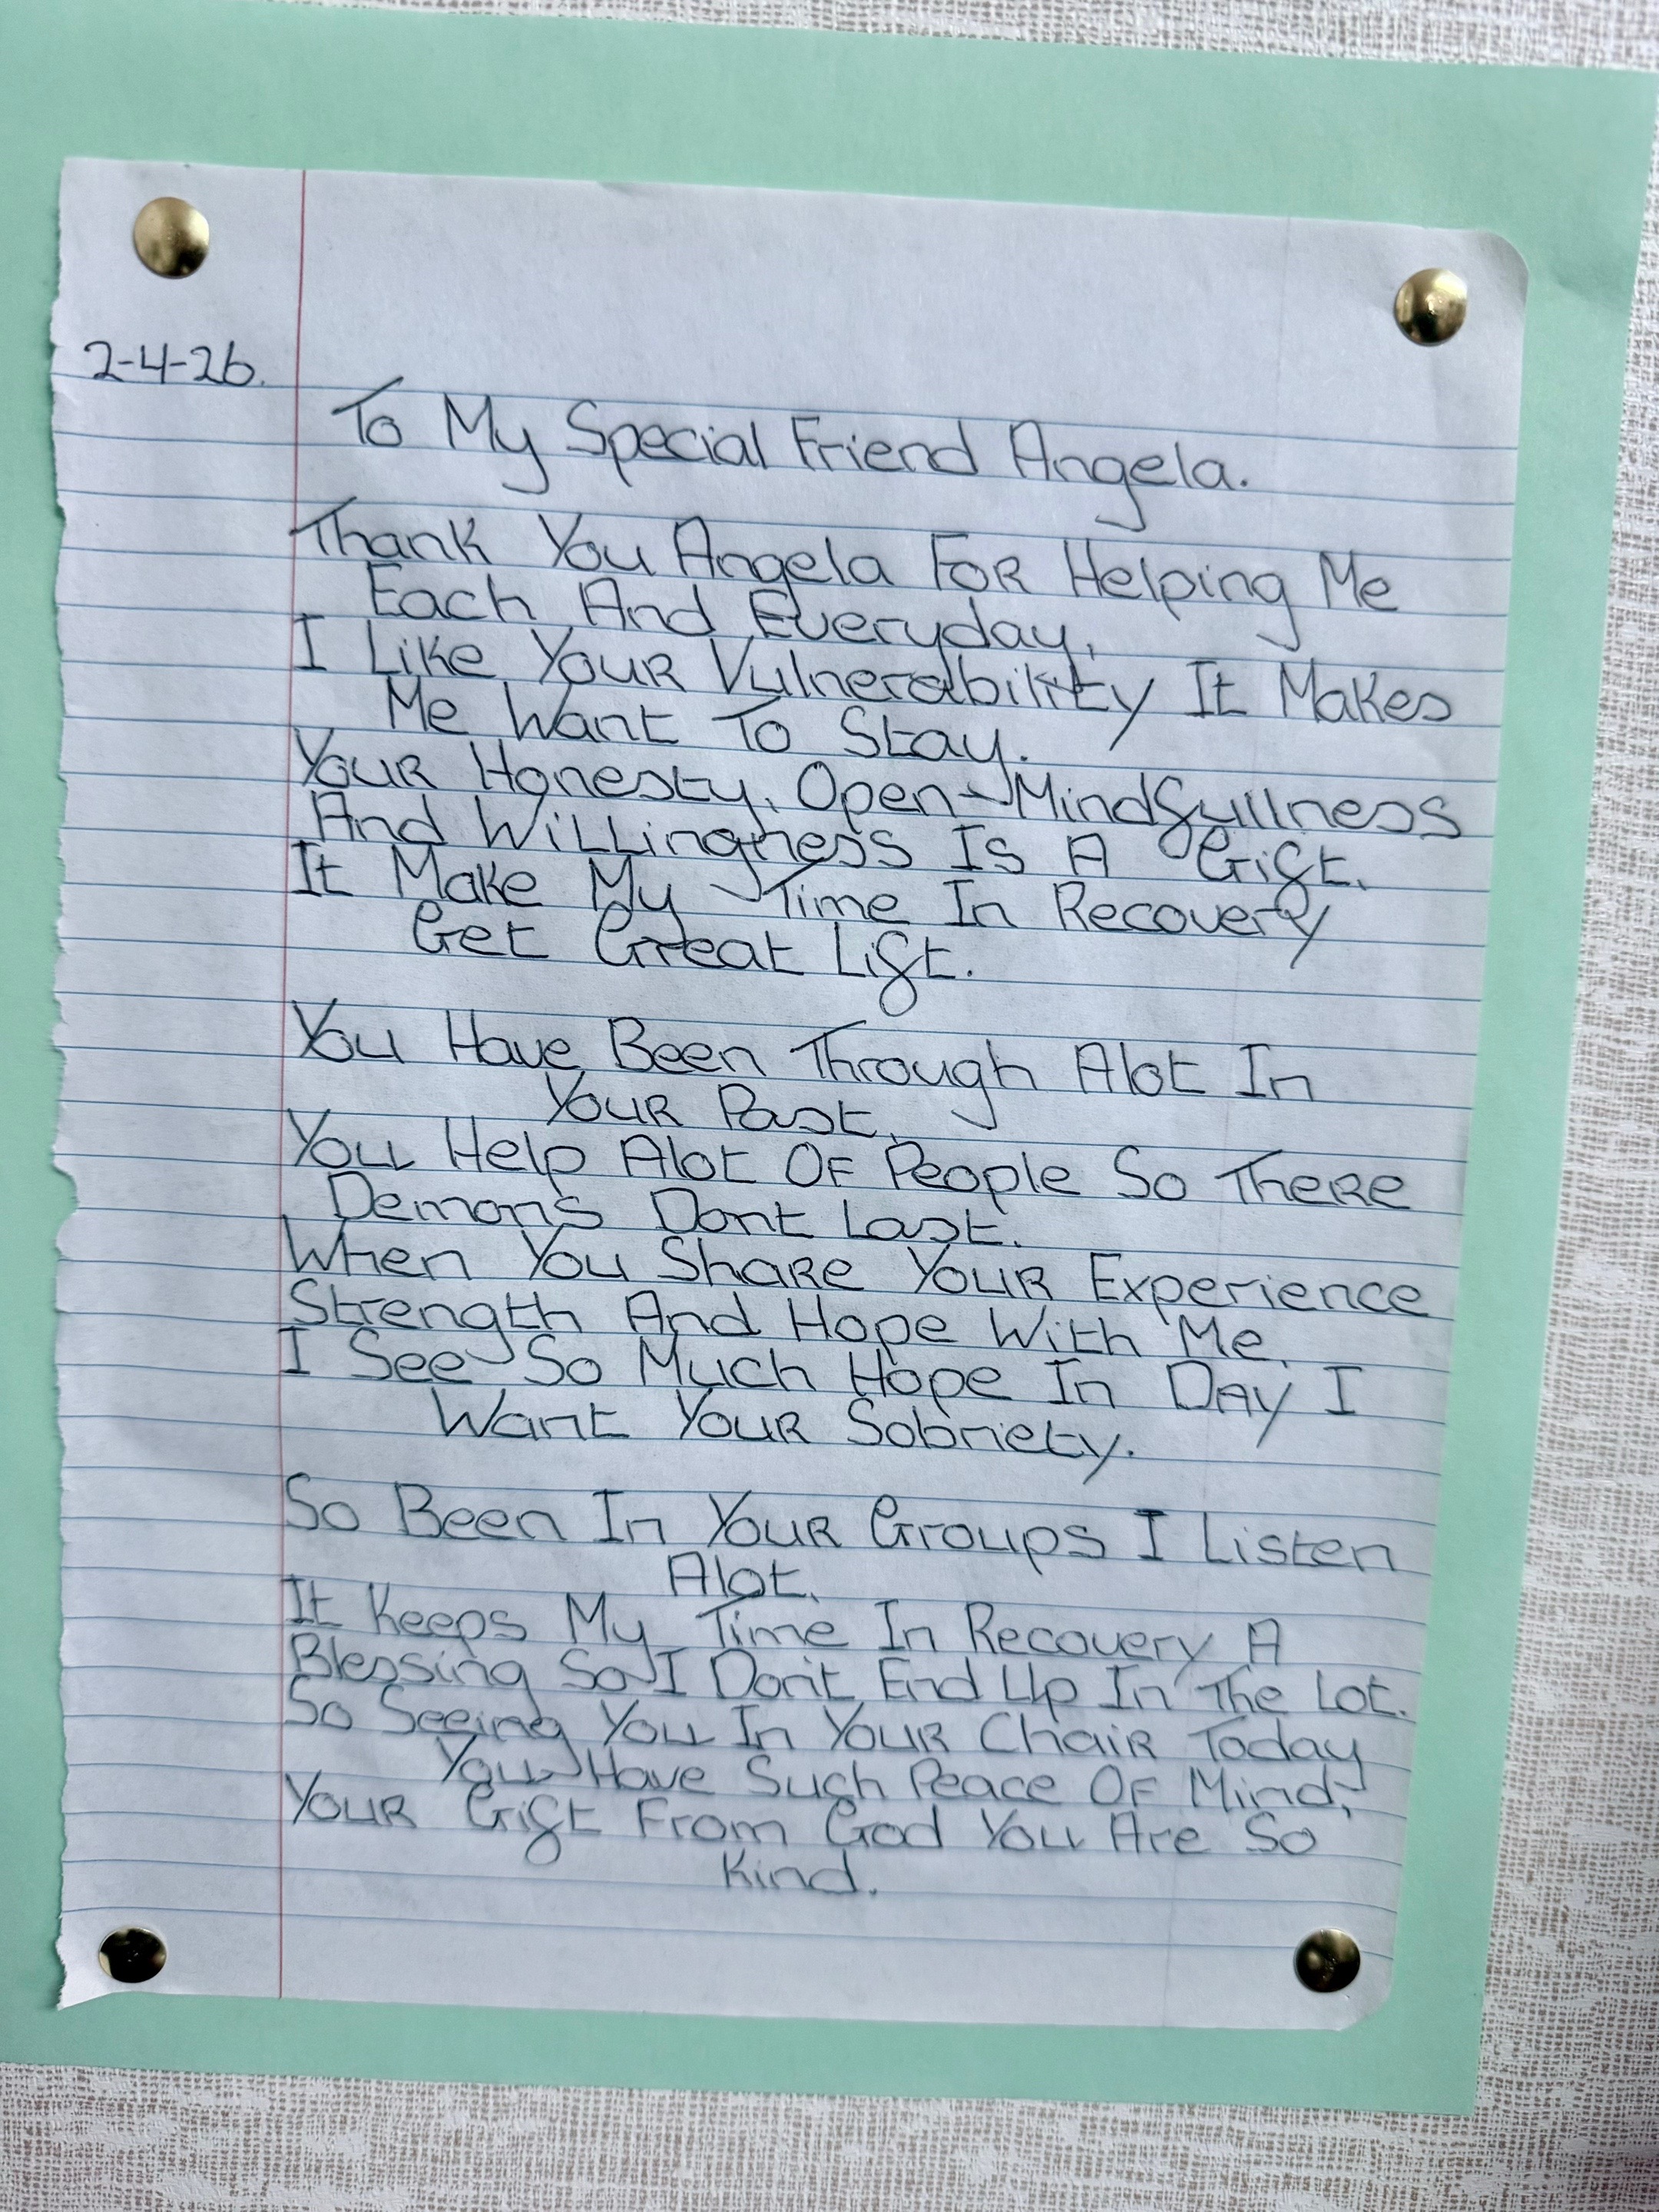 2-4-26.
To My Special Friend Angela.
Thank You Angela FOR Helping Me
Each And Everyday,
I Like Your Vulnerability It Makes
Me Want To Stay.
Your Honesty, Open-Mindfullness
And Willingness Is A Gift,
It Make My Time In Recovery
Get Great Lift.
You Have Been Through Alot In
Your Past,
You Help Alot Of People So There
Demon's Dont Last.
When You Share Your Experience
Strength And Hope With Me,
I See So Much Hope In Day I
Want Your Sobriety.
So Been In Your Groups I Listen
Alot,
It Keeps My Time In Recovery A
Blessing So I Don't End Up In The Lot.
So Seeing You In Your Chair Today
You Have Such Peace Of Mind,
Your Gift From God You Are So
Kind.